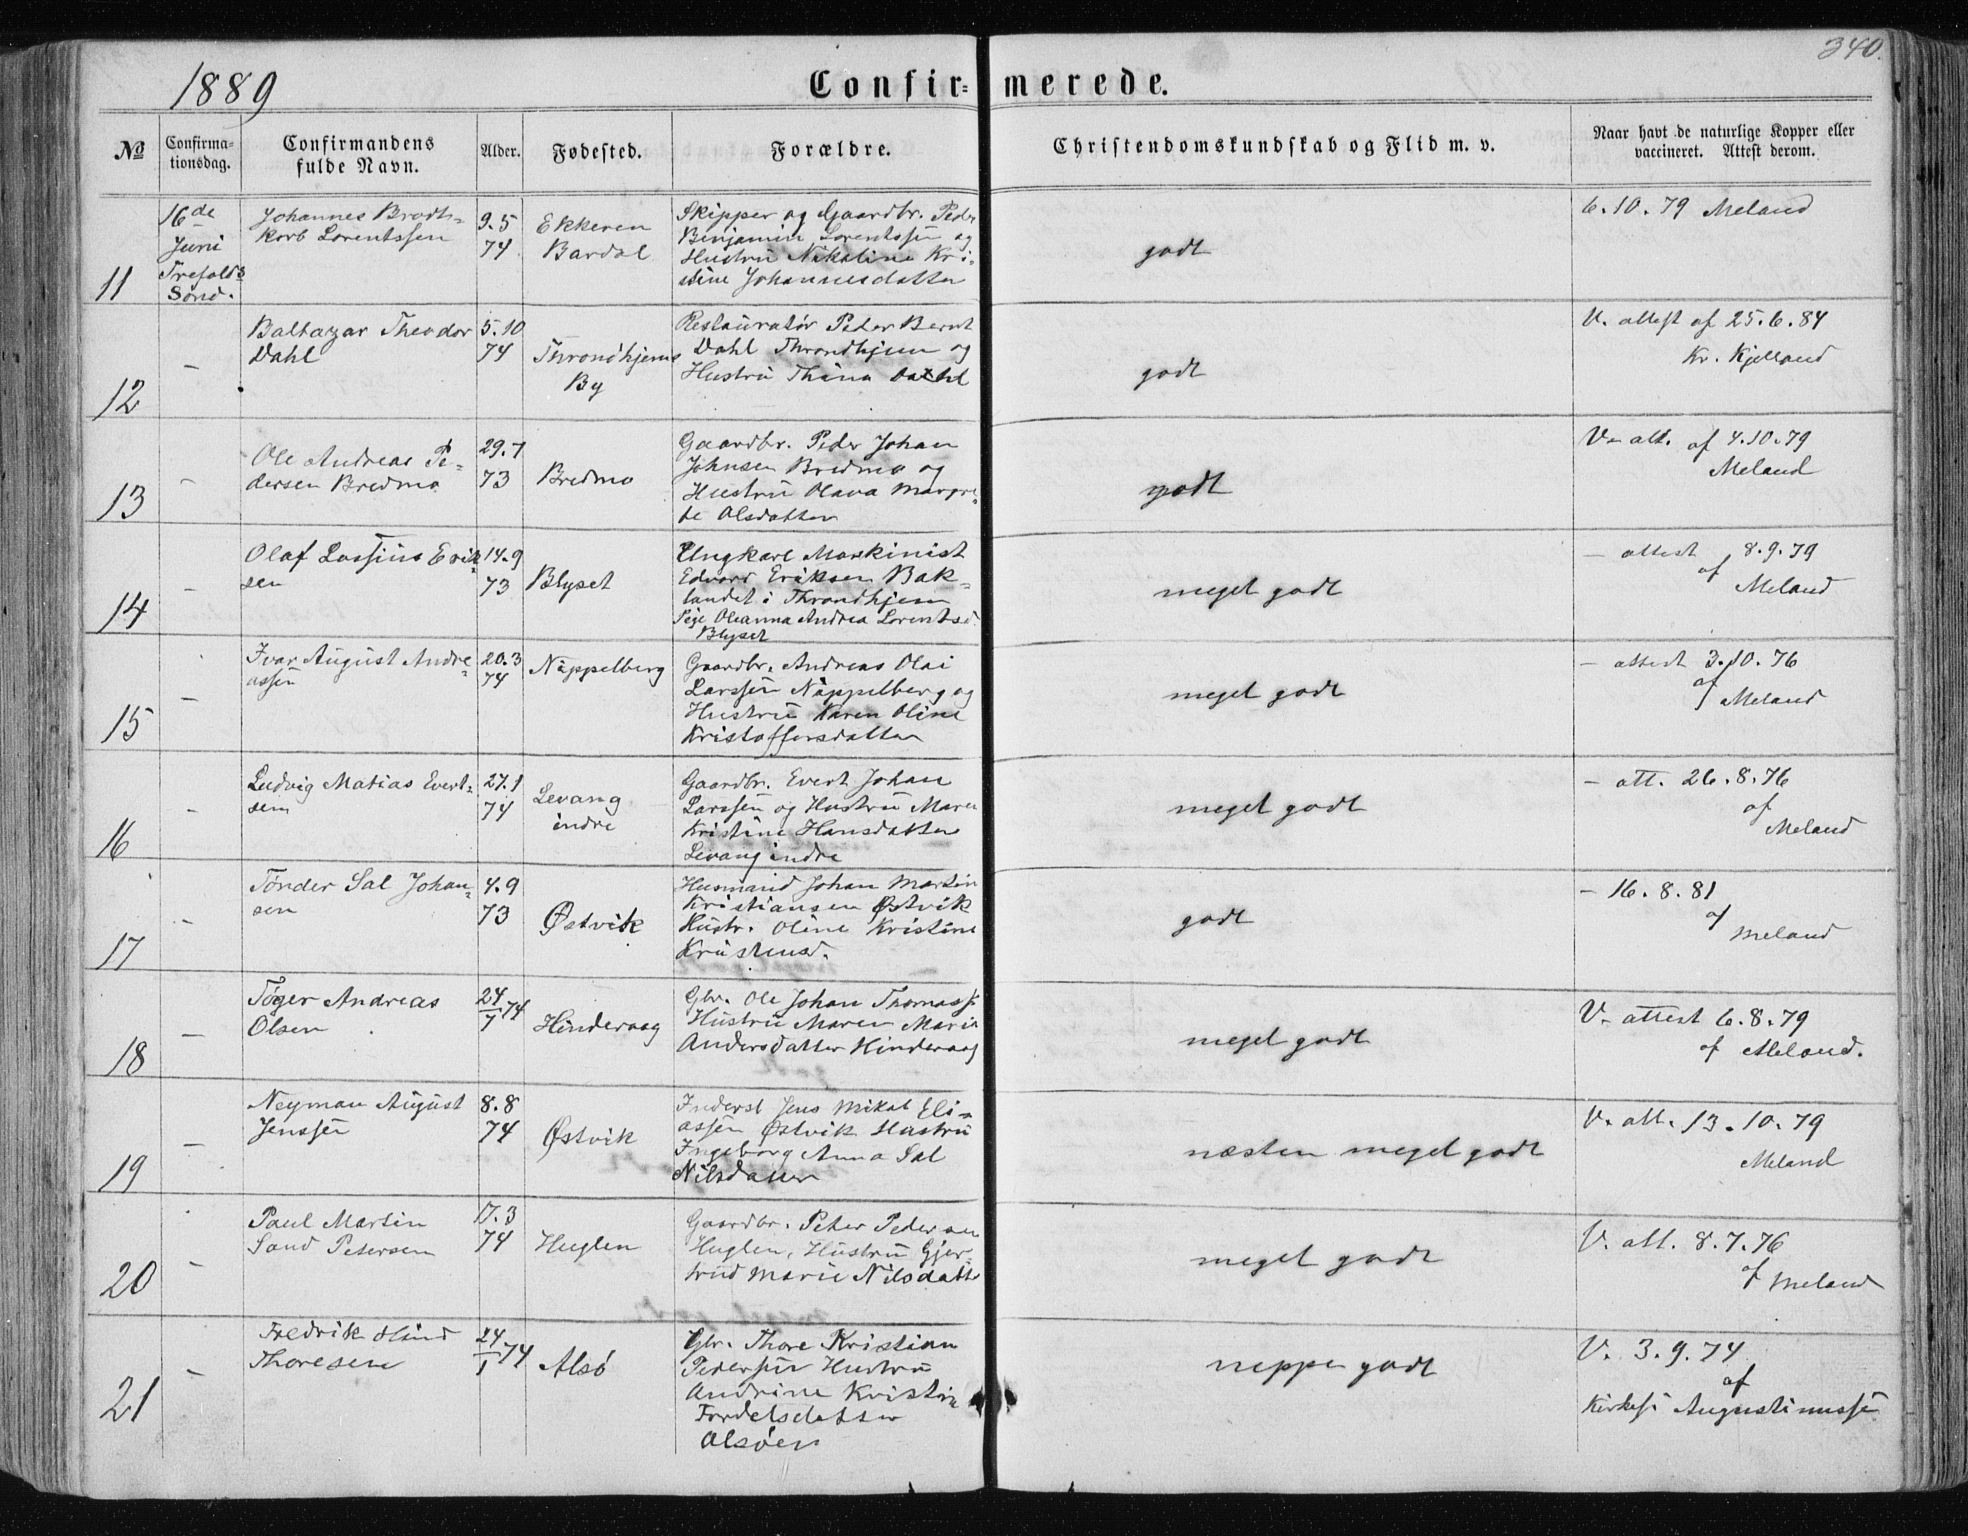 340.
1889
Confir=
merede.
№
Confirma-
tionsdag.
Confirmandens
fulde Navn.
Alder.
Fødested.
Forældre.
Christendomskundskab og Flid m. v.
Naar havt de naturlige Kopper eller
vaccineret. Attest derom.
11
16de
Juni
Trefolds
Sønd.
Johannes Brodt=
korb Lorentssen
9.5
74
Ekkeren
Bardal
Skipper og Gaardbr. Peder
Benjamin Lorentssen og
Hustru Nikoline Kri-
stine Johannesdatter
godt
6.10.79 Meland
12
–
Baltazar Theodor
Dahl
5.10
74
Throndhjems
By
Restauratør Peder Bernt
Dahl Throndhjem og
Hustru Dahl
godt
V. attest af 25.6.84
Kr. Kjelland
13
–
Ole Andreas Pe-
dersen Bredmo
29.7
73
Bredmo
Gaardbr. Peder Johan
Johnsen Bredmo og
Hustru Olava Margre-
te Olsdatter
godt
V. att. af 4.10.79
Meland
14
–
Olaf Lassius Erik-
sen
14.9
73
Blyset
Ungkarl Maskinist
Edvard Eriksen Bak-
landet i Throndhjem
Pige Oleanna Andrea Lorentsd
Blyset
meget godt
– attest 8.9.79
af
Meland
15
–
Ivar August Andre-
assen
20.3
74
Näppelberg
Gaardbr. Andreas Olai
Larssen Näppelberg og
Hustru Karen Oline
Kristoffersdatter
meget godt
– attest 3.10.76
af
Meland
16
–
Ludvig Matias Evert-
sen
27.1
74
Levang
indre
Gaardbr. Evert Johan
Larssen og Hustru Maren
Kristine Hansdatter
Levang indre
meget godt
– att. 26.8.76
af
Meland
17
–
Tønder Sal Johan-
sen
4.9
73
Østvik
Husmand Johan Martin
Kristiansen Østvik
Hustr. Oline Kristine
godt
– 16.8.81
af
Meland
18
–
Tøger Andreas
Olsen
24/7 74
Hinderaag
Gbr. Ole Johan Thomass.
Hustru Maren Marie
Andersdatter Hinderaag
meget godt
V. attest 6.8.79
af Meland.
19
–
Neuman August
Jenssen
8.8
74
Østvik
Inderst Jens Mikal Eli-
assen Østvik Hustru
Ingeborg Anna Sal
Nilsdatter
næsten meget godt
V. att. 13.10.79
Meland
20
–
Paul Martin
Sand Petersen
17.3
74
Huglen
Gaardbr. Peter Pedersen
Huglen, Hustru Gjer-
trud Marie Nilsdatter
meget godt
V. att. 8.7.76
af Meland
21
–
Fredrik Hind
Thoresen
24/1 74
Alsø
Gbr. Thore Kristian
Pederssen Hustru
Andrine Kristin
Fordelsdatter
Alsøen
neppe godt
V. 3.9.74
af
Kirkes. Augustinussen